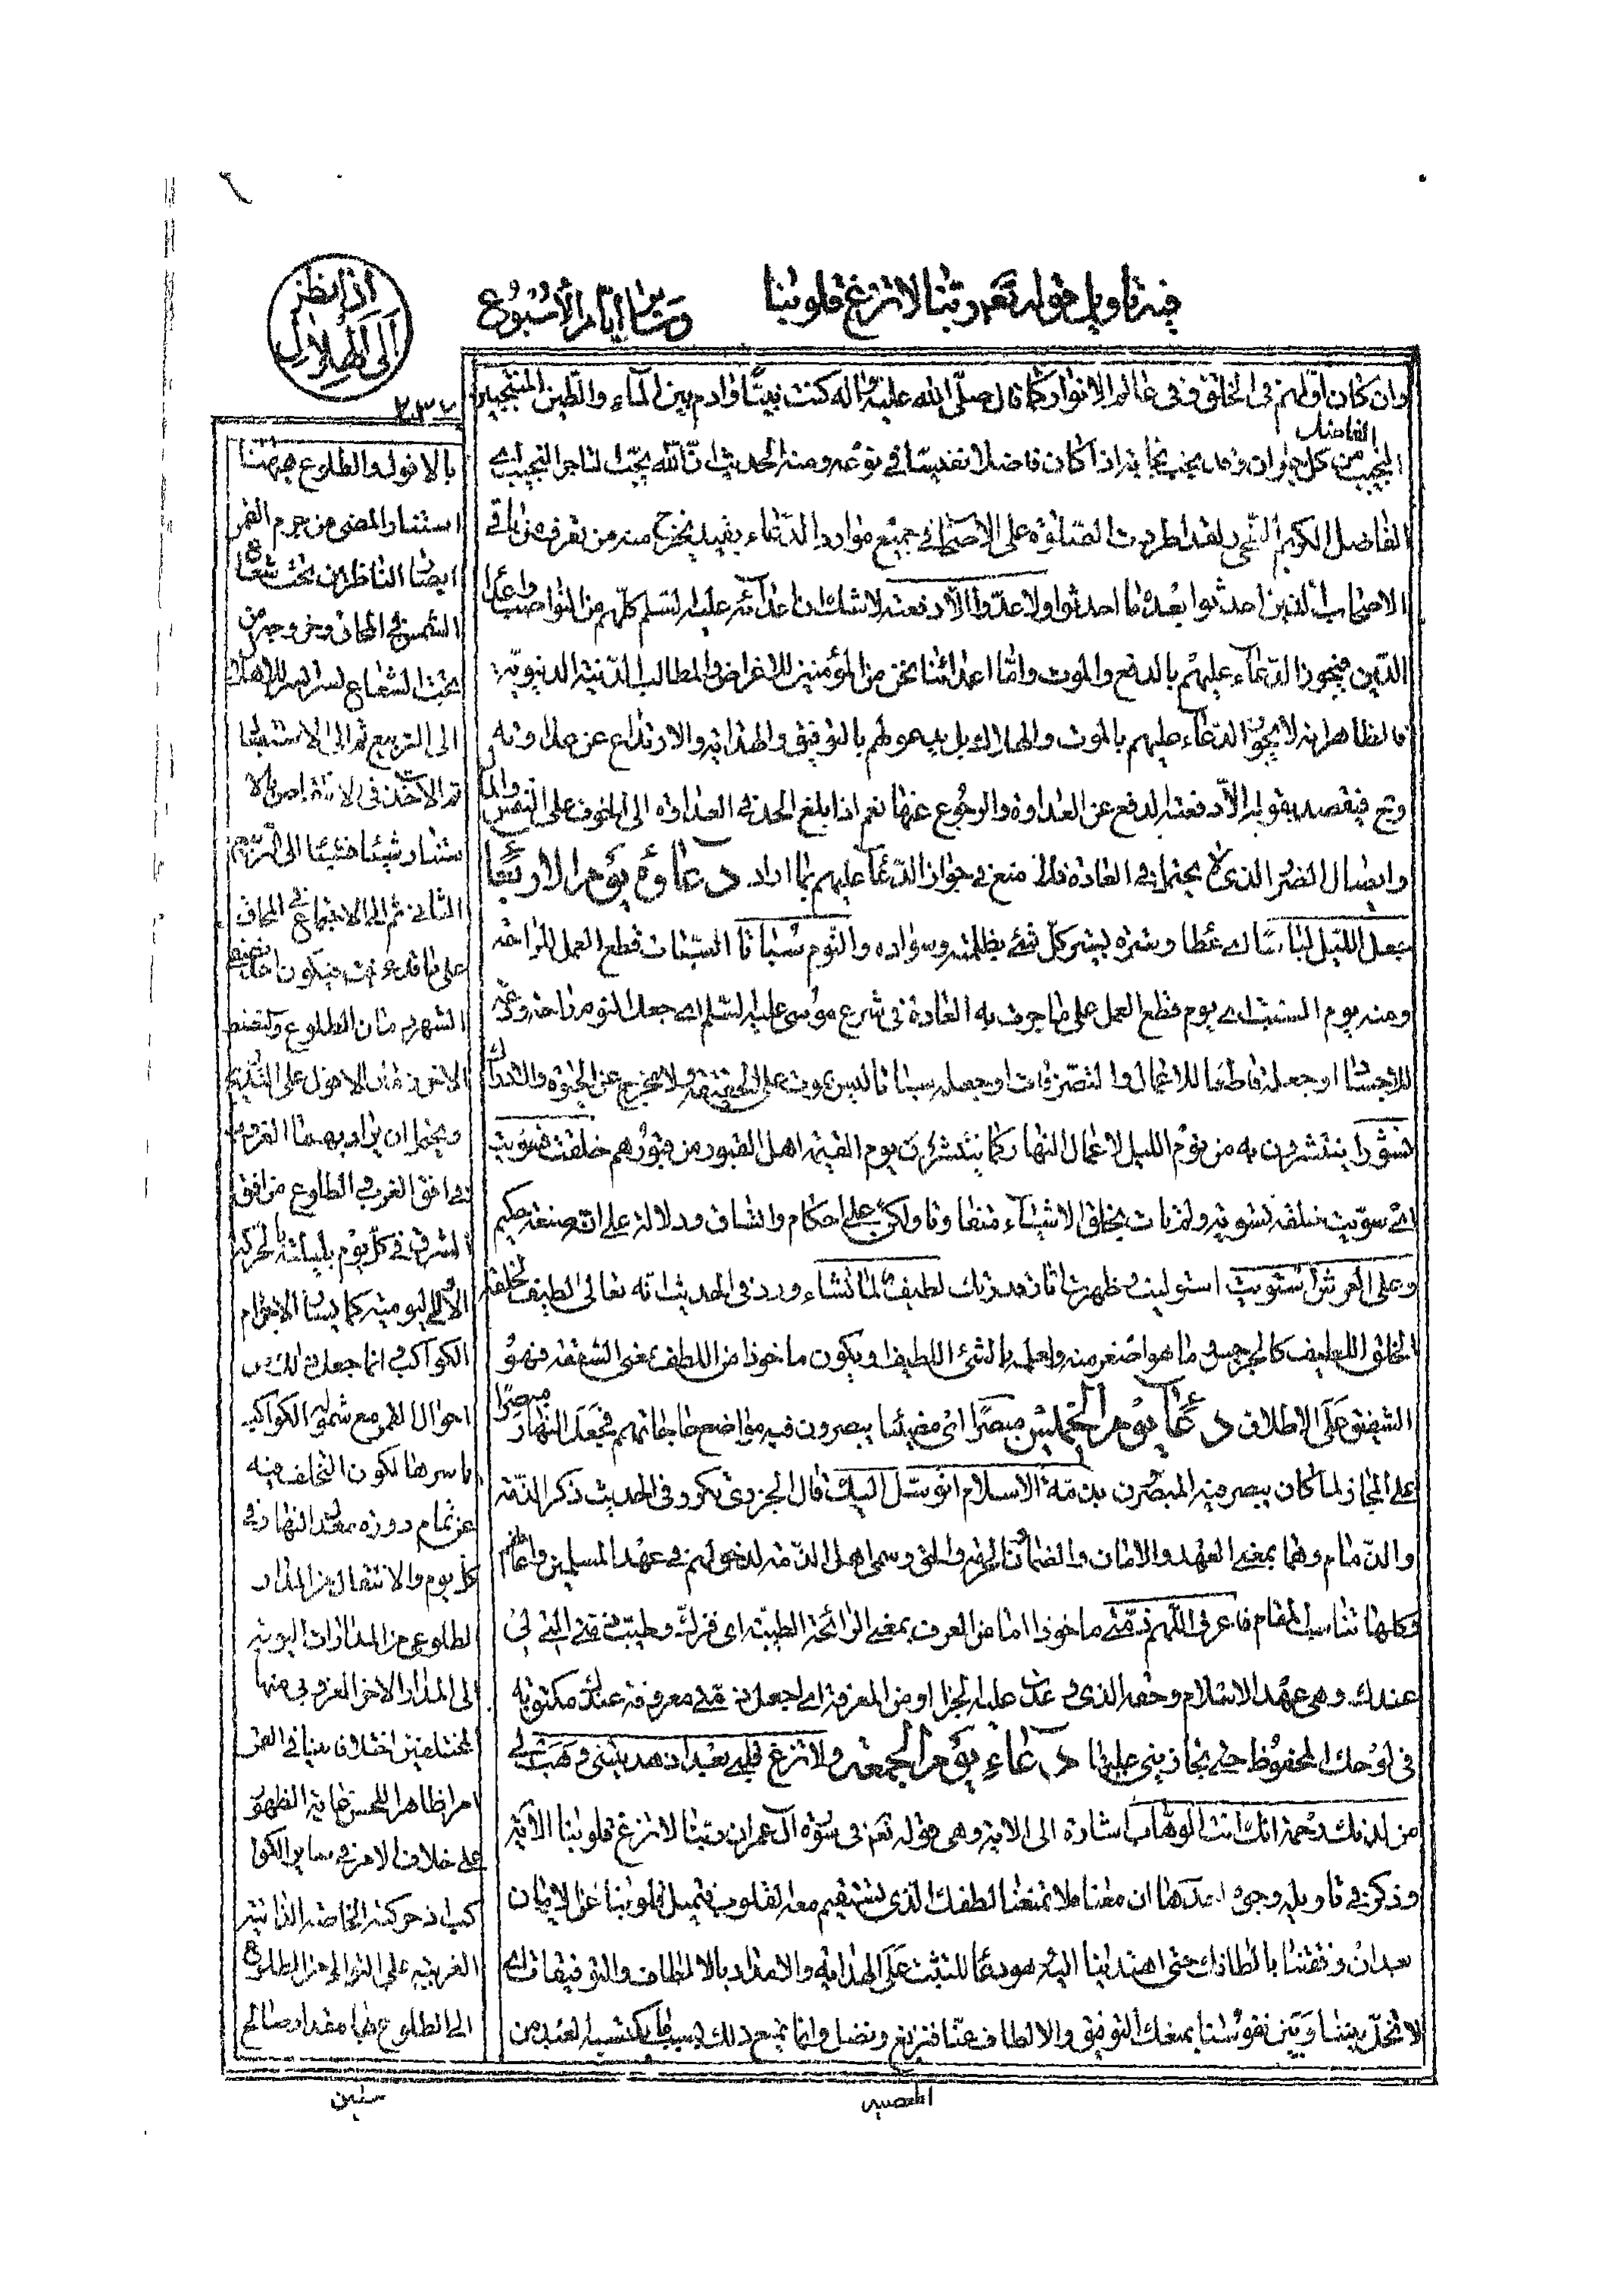 فيه تاويل قوله تعه ربنا لا تزغ قلوبنا
وبيان ايام الاسبوع
اذا نظر
الى الهلال
٢٣٧
وان كان اولهم في الخلق ففي عالم الانوار كما قال صلى الله عليه واله كنت نبيا وادم بين الماء والطين المنتجبين
الفاضل
النجيب من كل حيوان وقد نجب نجابة اذا كان فاضلا نفيسا في نوعه ومنه الحديث ان الله يحب التاجر النجيب اي
الفاضل الكريم السخي لقد اطردت الصلوة على الاصحاب في جميع موارد الدعاء بقيد يخرج منه من نعرفه من باقي
الاصحاب الذين احدثوا بعده ما احدثوا ولا عدوا الا دفعته لا شك ان اعدائه عليه السلم كلهم من النواصب واعداء
الدين فيجوز الدعاء عليهم بالدفع والموت واما اعدائنا نحن من المؤمنين للاغراض والمطالب الدنية الدنيوية
فالظاهر انه لا يجوز الدعاء عليهم بالموت والهلاك بل يدعو لهم بالتوفيق والهداية والارتداع عن عداوته
وح فيقصد بقوله الا دفعته الدفع عن العداوة والرجوع عنها نعم اذا بلغ الحد في العداوة الى الخوف على النفس والمال
وايصال الضرر الذي لا يحتمل في العادة فلا منع في جواز الدعاء عليهم بما اراد دعاء يوم الاربعا
جعل الليل لباسا اي غطا وستره يستر كل شئ بظلمته وسواده والنوم سباتا السبات قطع العمل للراحة
ومنه يوم السبت اي يوم قطع العمل على ما جرت به العادة في شرع موسى عليه السلم اي جعل النوم راحة ودعة
للاجساد او جعله قاطعا للاعمال والتصرفات او جعله سباتا ليس بموت على الحقيقة ولا مخرج عن الحيوة والادراك
نشورا ينتشرون به من نوم الليل لاعمال النهار كما ينتشرون يوم القيمة اهل القبور من قبورهم خلقت فسويت
اي سويت خلقه تسوية ولم يات بخلق الاشياء متفاوتا ولكن على احكام واتساق ودلالة على انه صنعة حكيم
وعلى العرش استويت استوليت وظهرت اثار قدرتك لطيف لما تشاء ورد في الحديث انه تعالى لطيف لخلقه
الخلق اللطيف كالجرجس وما هو اصغر منه ولعلمه بالشئ اللطيف ويكون ماخوذا من اللطف بمعنى الشفقة فهو
الشفيق على الاطلاق دعاء يوم الخميس مبصرا اي مضيئا يبصرون فيه مواضع حاجاتهم فجعل النهار مبصرا
على المجاز لما كان يبصر فيه المبصرون بذمة الاسلام اتوسل اليك قال الجزري تكرر في الحديث ذكر الذمة
والذمام وهما بمعنى العهد والامان والضمان والحرمة والحق وسمى اهل الذمة لدخولهم في عهد المسلمين وامانهم
وكلها تناسب المقام فاعرف اللهم ذمتي ماخوذ اما من العرف بمعنى الرائحة الطيبة اى فزد وطيب ذمتي التي لي
عندك وهي عهد الاسلام وحقه الذي وعدت عليه الجزا او من المعرفة اي اجعل ذمتي معروفة عندك مكتوبة
في لوحك المحفوظ حتى تجازيني عليها دعاء يوم الجمعة ولا تزغ قلبي بعد اذ هديتني وهب لي
من لدنك رحمة انك انت الوهاب اشارة الى الاية وهي قوله تعه في سورة آل عمران ربنا لا تزغ قلوبنا الاية
وذكر في تاويله وجوه احدها ان معناه لا تمنعنا لطفك الذي تستقيم معه القلوب فتميل قلوبنا عن الايمان
بعد ان وفقتنا بالطافك حتى اهتدينا اليه هو دعا للتثبت على الهداية والامداد بالالطاف والتوفيقات اي
لا تخل بيننا وبين نفوسنا بمنعك التوفيق والالطاف عنا فنزيغ ونضل وانما يمنع ذلك بسبب ما يكتسبه العبد من
المعصية
بالافول والطلوع هيهنا
استتار المضي من جرم القمر
ابصار الناظرين تحت شعاع
الشمس في المحاق وخروجه من
تحت الشعاع يسيرا يسيرا الاهلال
الى التربيع ثم الى الاستقبال
ثم الاخذ في الانتقاص بالا
ستتار شيئا فشيئا الى التربيع
الثاني ثم الى الاجتماع في المحاق
على ما قد عرفت فيكون احد نصفي
الشهر زمان الطلوع والنصف
الاخر زمان الافول على التدريج
ويحتمل ان يراد بهما الغروب
في افق الغرب والطلوع من افق
الشرق في كل يوم بليلته بالحركة
الاولى اليومية كما يسار الاجرام
الكواكب وانما جعل ذلك من
احوال القمر مع شموله الكواكب
باسرها لكون التخلف فيه
عن تمام دورة معدل النهار في
كل يوم والانتقال من المدار
الطلوعي من المدارات اليومية
الى المدار الاخر الغروبي منها
المختلفين اختلافا بينا في القمر
امرا ظاهرا للحس غاية الظهور
على خلاف الامر في سائر الكوا
كب اذ حركته الخاصة الذاتية
الغربية على التوالي من الطلوع
الى الطلوع لها مقدار صالح
سنين